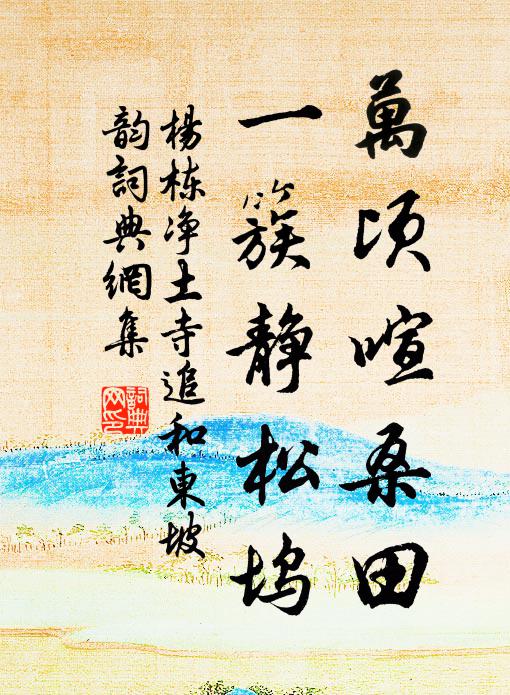 萬頃喧桑田
一簇静松塢
楊栋净土寺追和東坡
韵詞典網集
詞典
网印